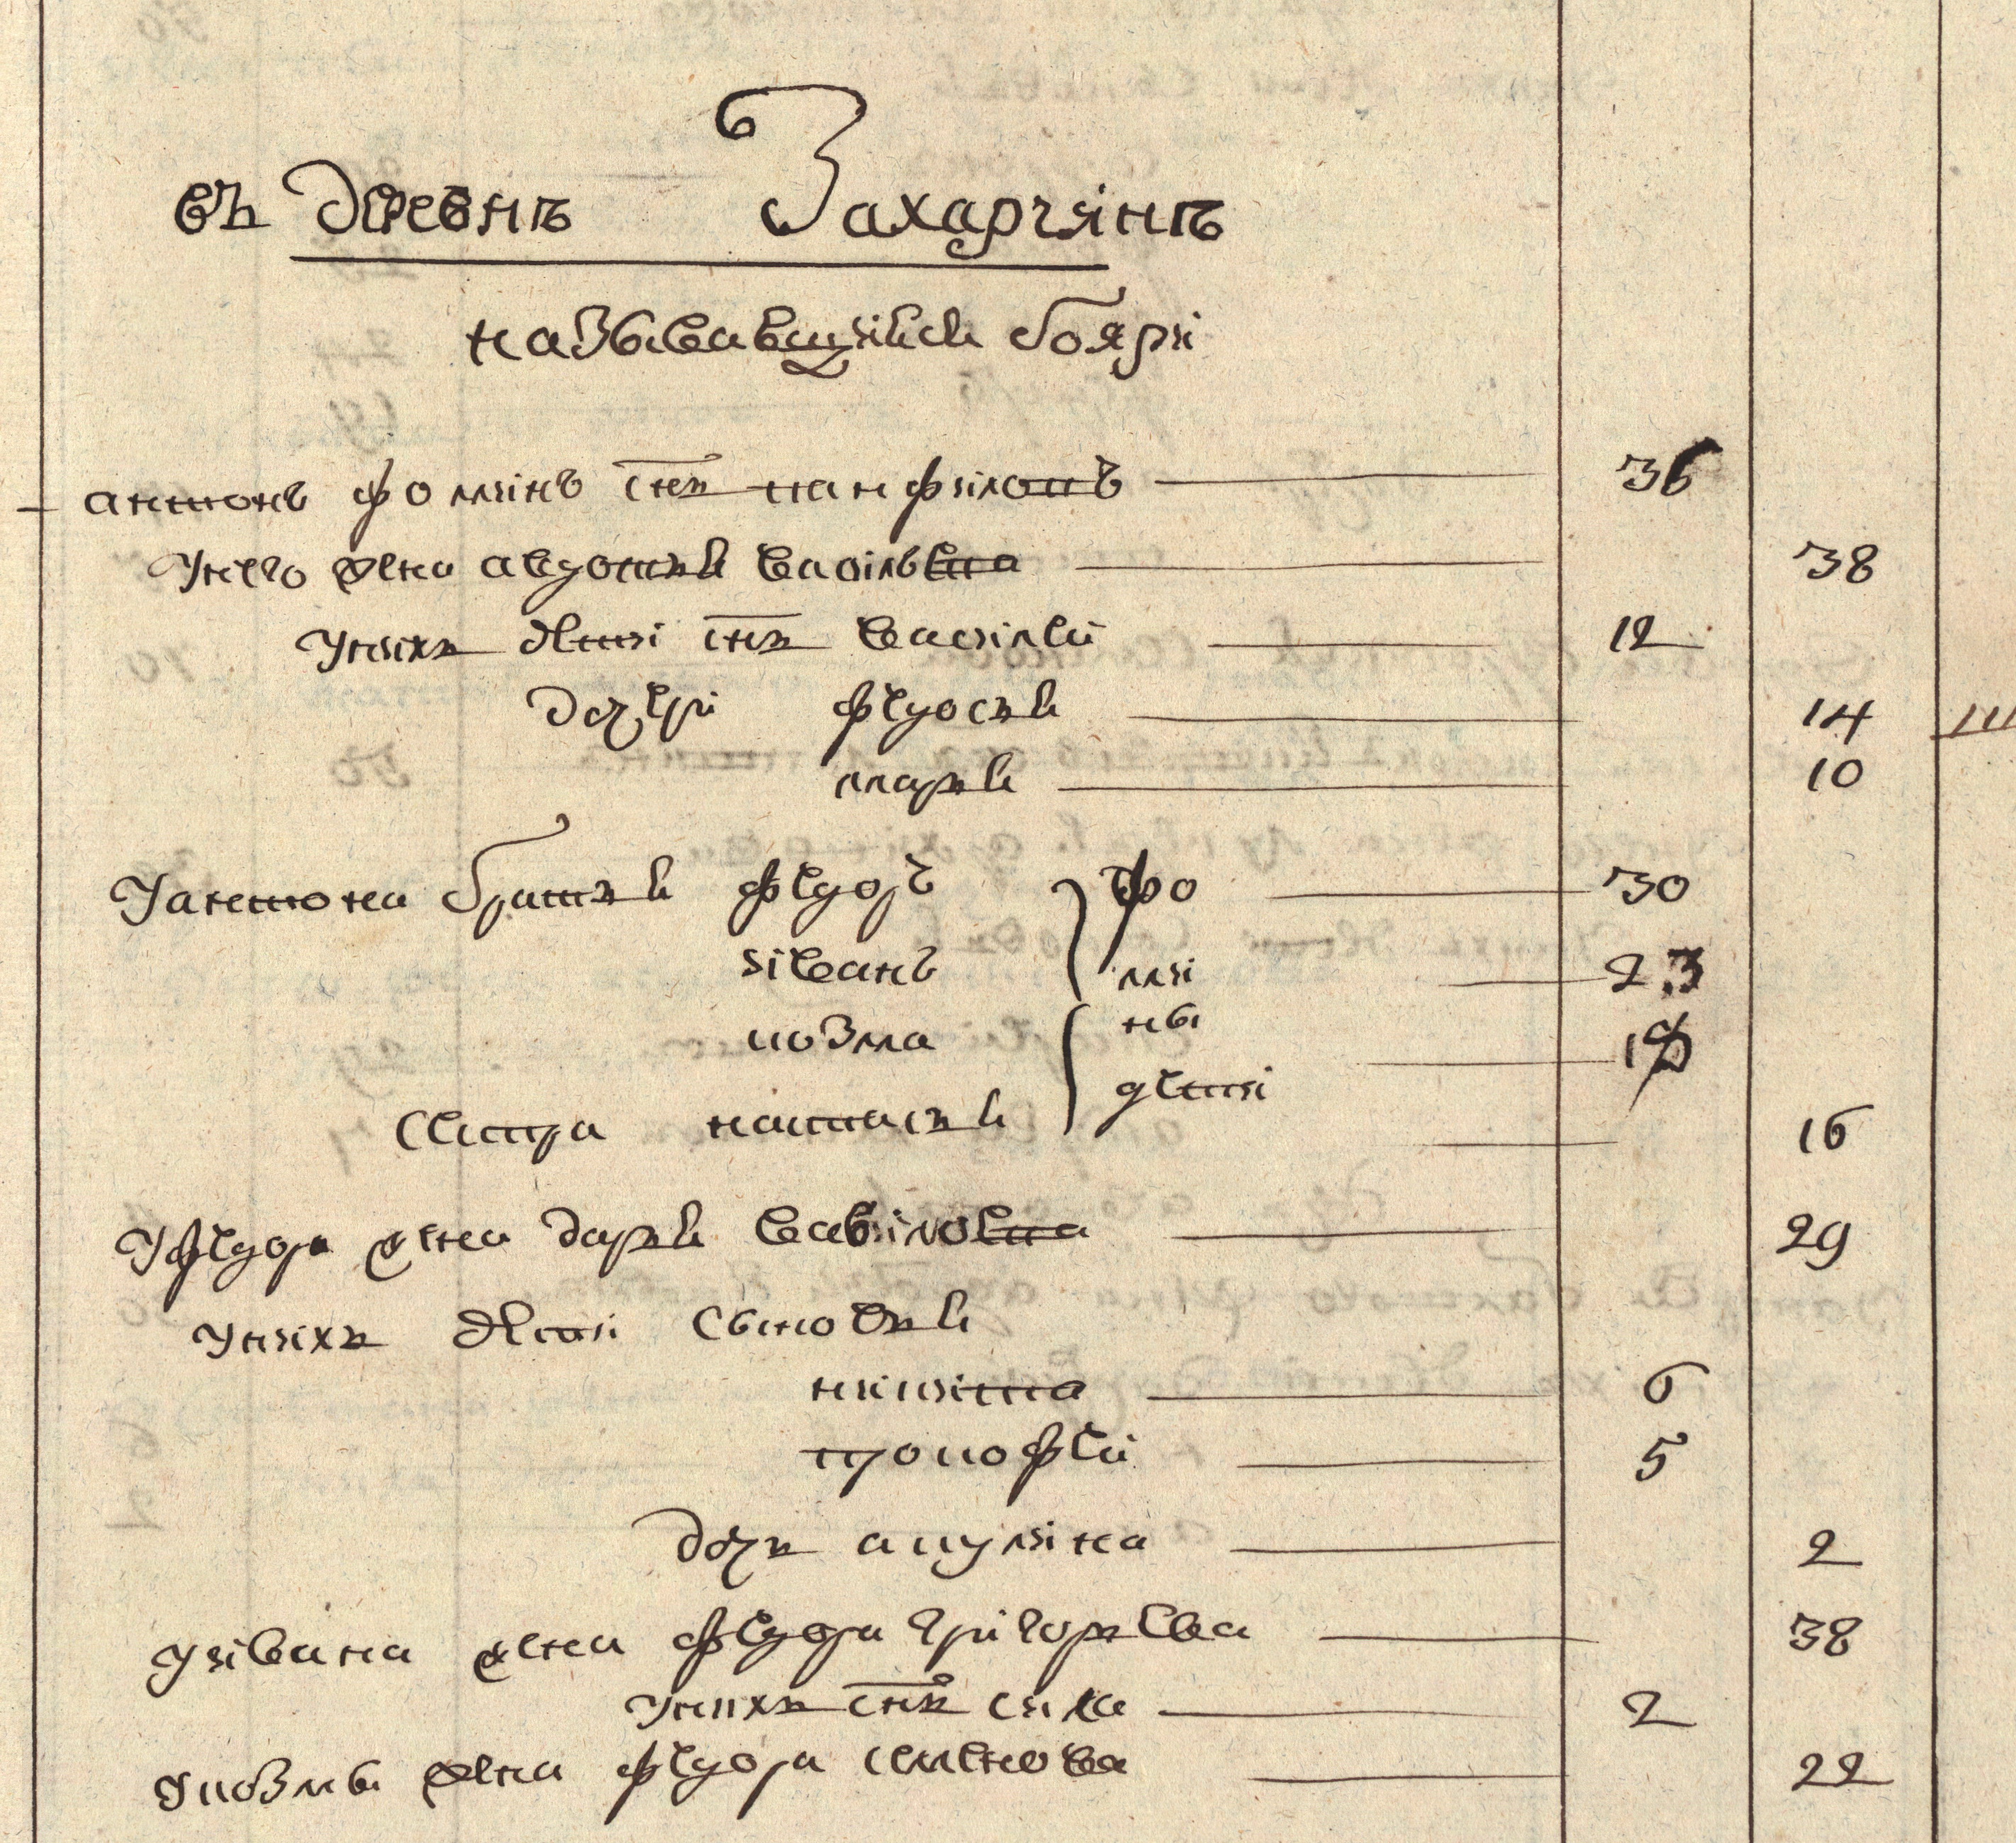 въ деревнѣ Захарчинѣ
называвшиися бояри
антонъ фоминъ снъ панфиловъ 36
унего жена авдотья васильевна 38
унихъ дети снъ василей 12
дочери федосья 14
марья 10
уантона братья федоръ фо 30
иванъ ми 23
козма ны
дети
сестра наталья 16
уфедора жена дарья вавиловна 29
унихъ дети сыновья
никита 6
прокофей 5
дочь акулина 2
уивана жена федора григорьева 38
унихъ снъ сила 2
укозмы жена федора семенова 22